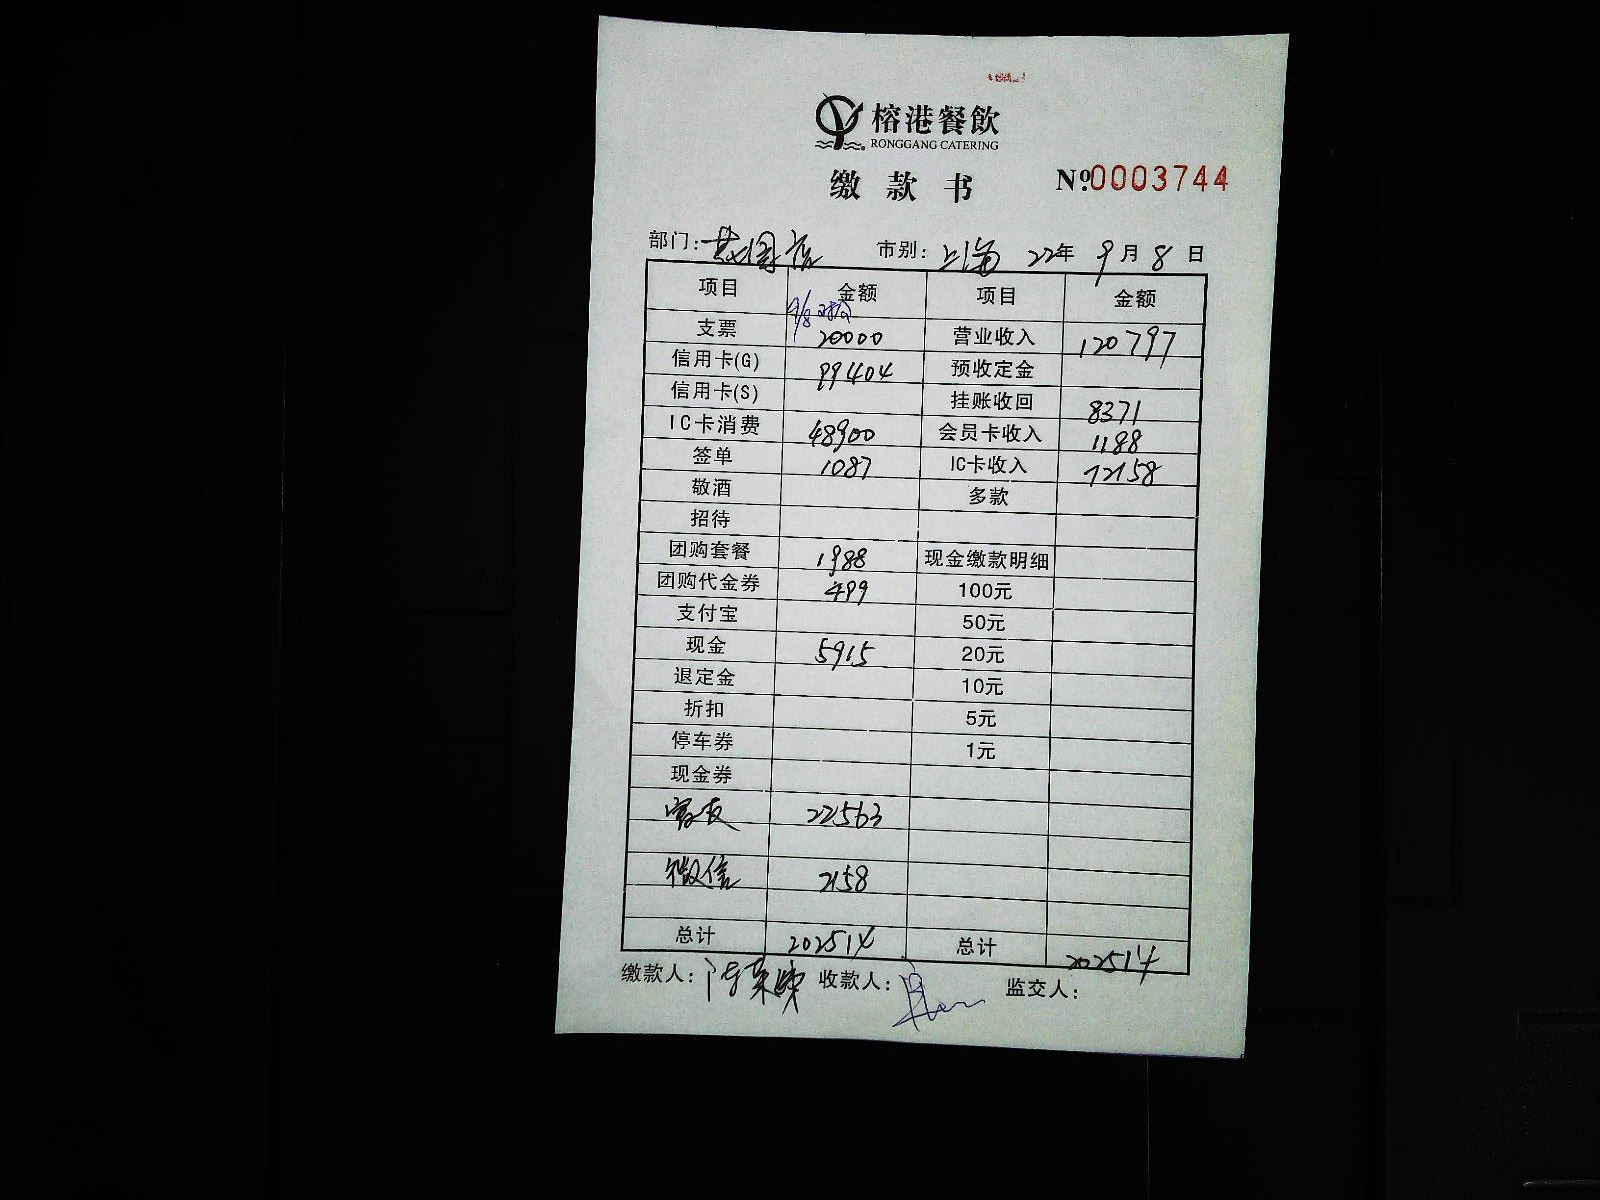 榕港餐飲
RONGGANG CATERING
缴款书 №0003744
部门: 市别: 上海 22年 9月 8日
项目 金额 项目 金额
支票 20000 营业收入 120797
信用卡(G) 99404 预收定金
信用卡(S) 挂账收回 8371
IC卡消费 48900 会员卡收入 1188
签单 1087 IC卡收入 72158
敬酒 多款
招待
团购套餐 1988 现金缴款明细
团购代金券 499 100元
支付宝 50元
现金 5915 20元
退定金 10元
折扣 5元
停车券 1元
现金券
22563
微信 2158
总计 202514 总计 202514
缴款人: 收款人: 监交人: